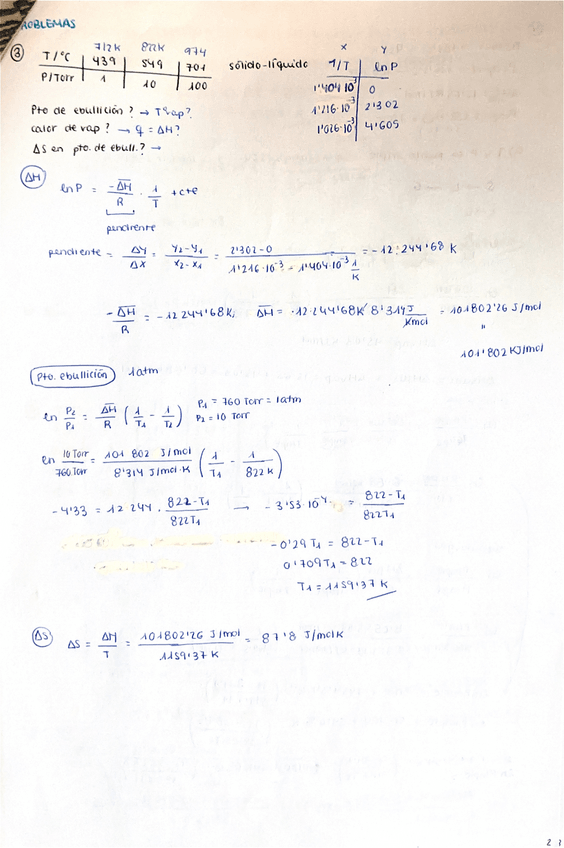 PROBLEMAS
③ 712K 822K 974
T/ºC 439 549 701 sólido-líquido
P/Torr 1 10 100
x y
1/T lnP
1'404·10⁻³ 0
1'216·10⁻³ 2'302
1'026·10⁻³ 4'605
Pto de ebullición? → Tªvap?
calor de vap? → q = ΔH?
ΔS en pto. de ebull.? →
ΔH
lnP = -ΔH̅/R · 1/T + cte
pendiente
pendiente = ΔY/ΔX = (Y₂-Y₁)/(X₂-X₁) = (2'302-0)/(1'216·10⁻³ - 1'404·10⁻³ 1/K) = -12'244'68 K
-ΔH̅/R = -12 244'68K; ΔH̅ = ·12·244'68K 8'314 J/Kmol = 101802'26 J/mol
"
101'802 KJ/mol
Pto. ebullición 1atm
ln P₂/P₁ = ΔH̅/R (1/T₁ - 1/T₂) P₁ = 760 Torr = 1atm
P₂ = 10 Torr
ln 10 Torr/760 Torr = 101 802 J/mol / 8'314 J/mol·K (1/T₁ - 1/822 K)
-4'33 = 12·244 · (822-T₁)/822T₁ → -3'53·10⁻⁴ = (822-T₁)/822T₁
-0'29T₁ = 822-T₁
0'709T₁ = 822
T₁ = 1159'37 K
ΔS ΔS = ΔH/T = 101802'26 J/mol / 1159'37 K = 87'8 J/molK